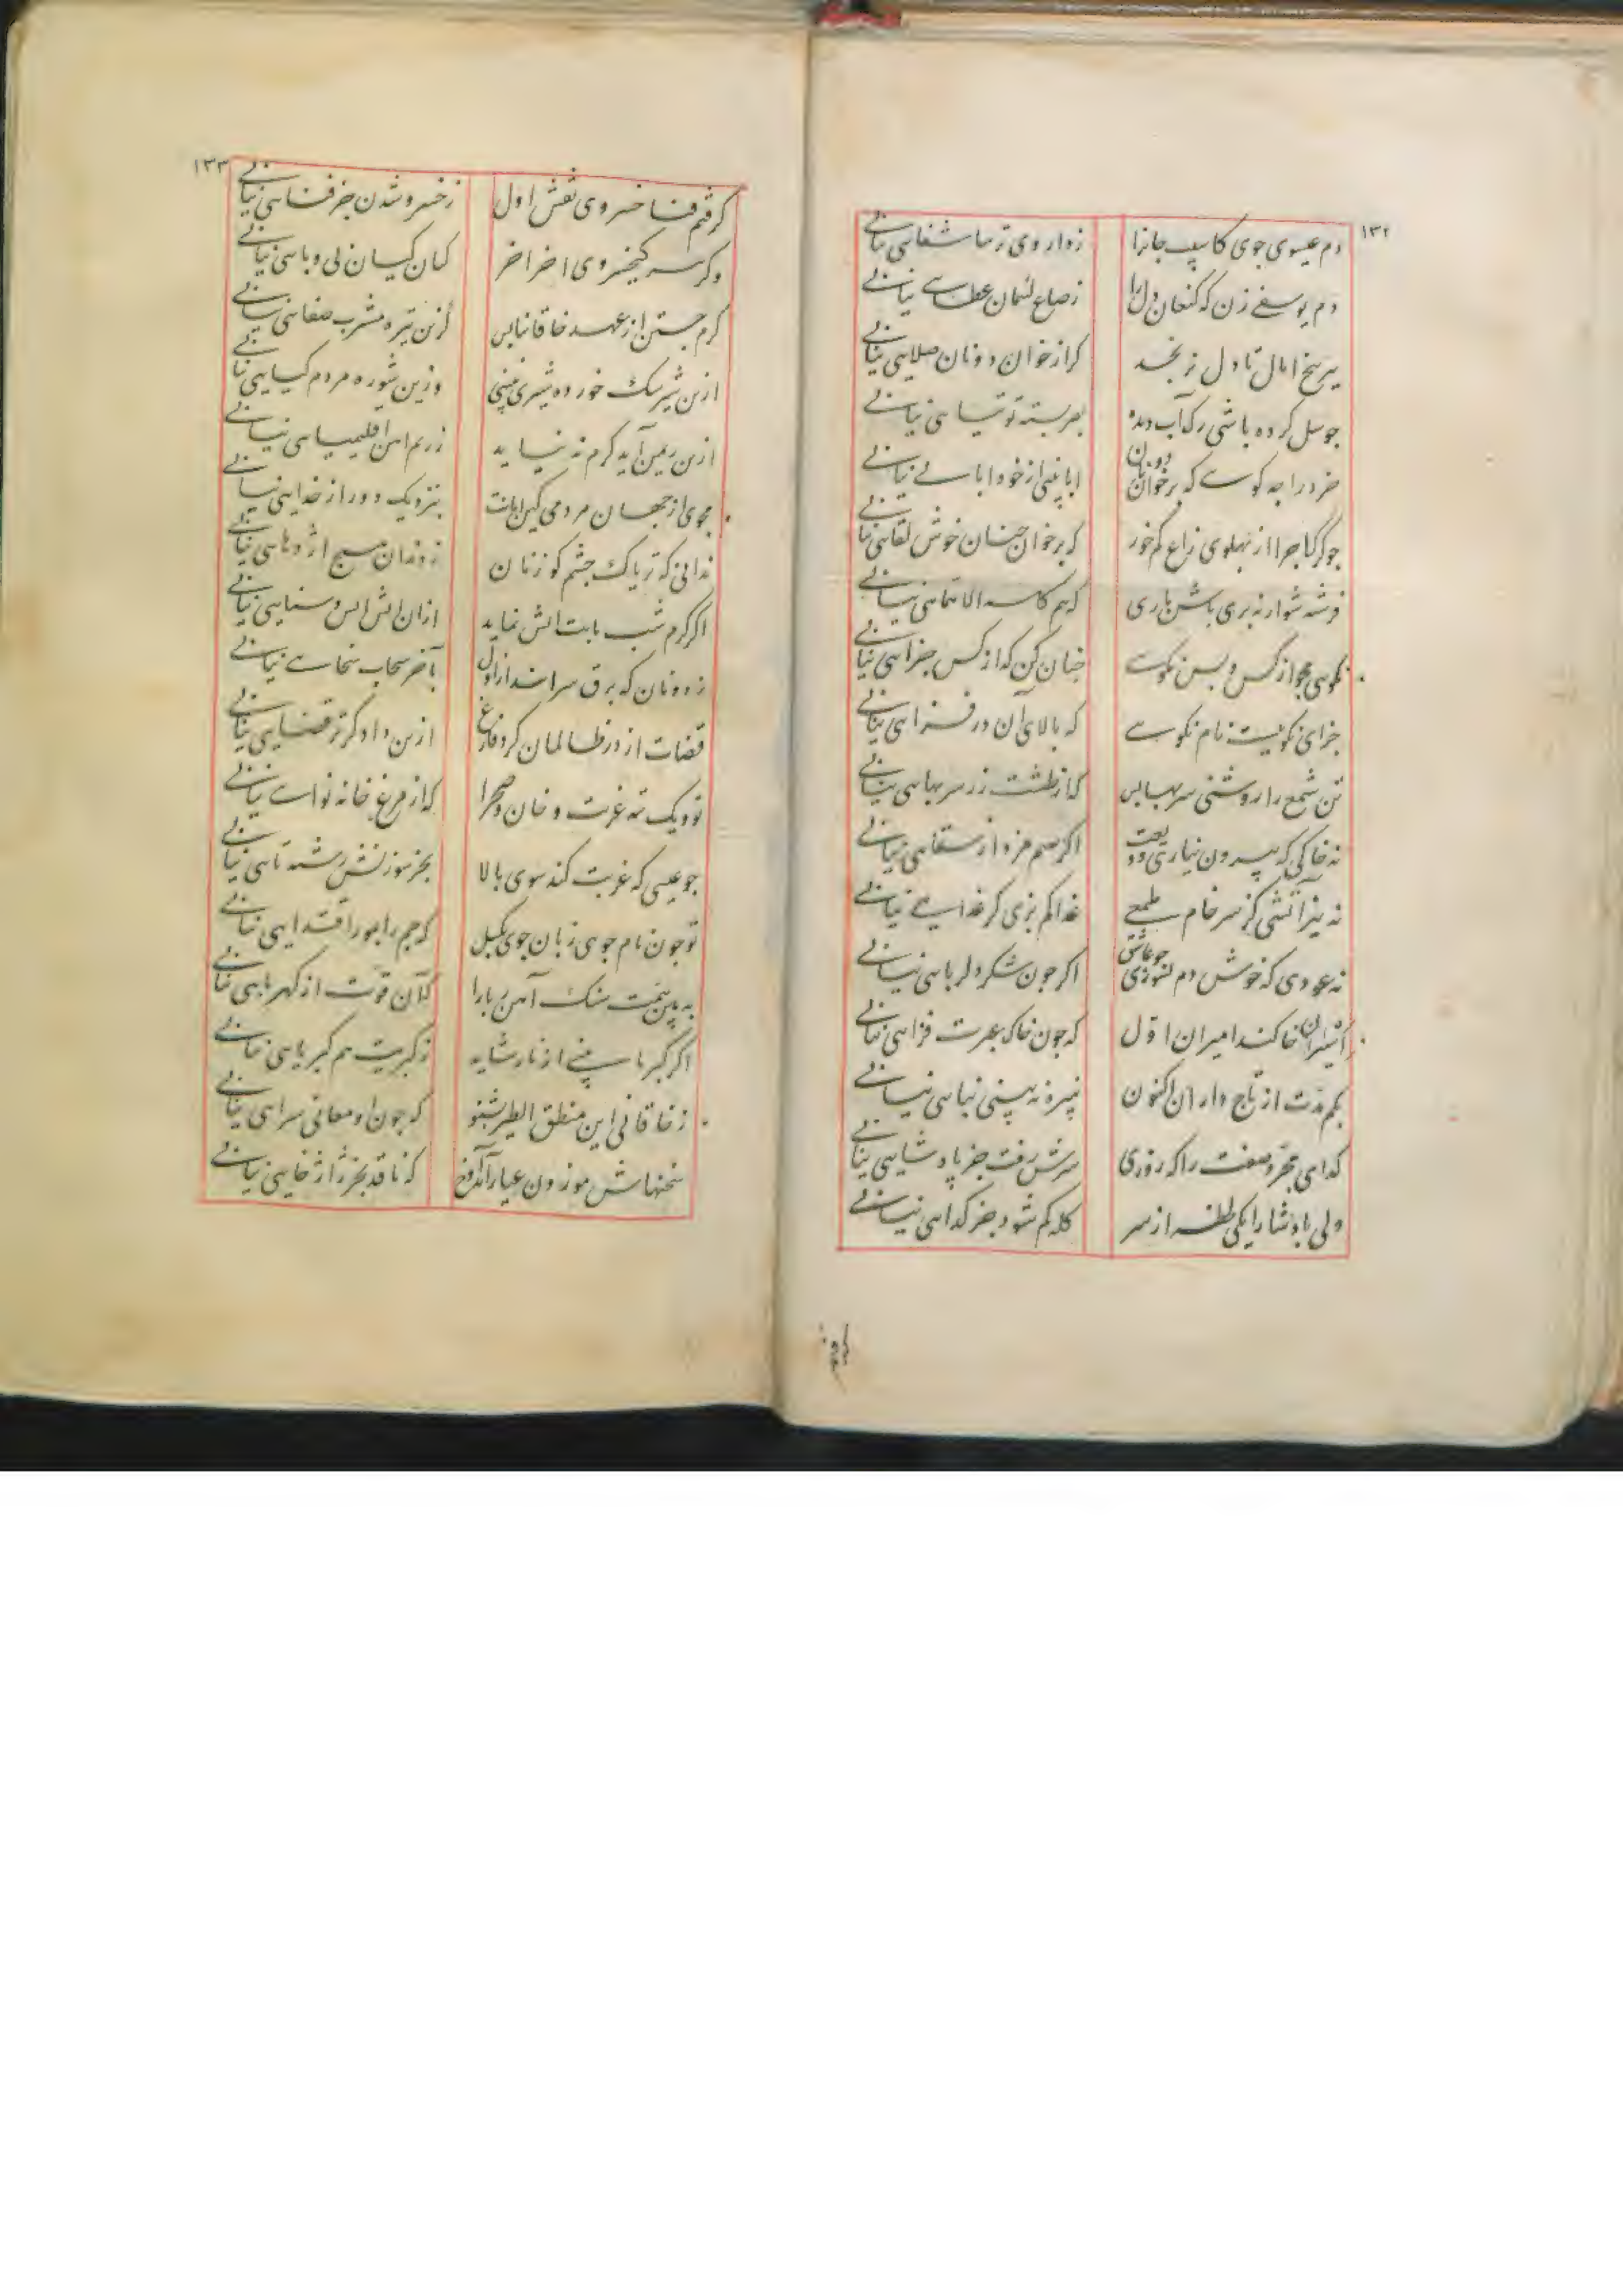 ۱۳۲
دم عیسوی جوی کاسیب جانرا زداروی ترسا شفایی نیابی
دم یوسفی زن که کنعان دل را زصاع لئیمان عطایی نیابی
ببر بیخ امال تا دل نرنجد کز از خوان دونان صلایی نیابی
جو سل کرده باشی رک آب دیده بصر بسته توتیایی نیابی
خرد را چه کویی که بر خوان دونان ابا بینی از خود ابایی نیابی
جو کرکا جرا از پهلوی زاغ کم خور که بر خوان جنان خوش لقایی نیابی
فرشته شوار نه بری باش باری که هم کاسه الا همایی نیابی
نکویی مجو از کس و بس نکویی جنان کن که از کس جزایی نیابی
جزای نکوییست نام نکویی که بالای آن در فزایی نیابی
تن شمع را روشنی سر بهابس که از طشت زر سر بهایی نیابی
نه خاکی که بیرون نیاری ودیعت اگر هم مزد از سقایی نیابی
نه نیز آتشی کز سر خام طمعی غذا کم بزی کر غذایی نیابی
نه عودی که خوش دم بسوزی جو عاشق اکر جون شکر دلربایی نیابی
اسیران خاکند امیران اول که جون خاک عبرت فزایی نیابی
بکم مدت از تاج داران اکنون نبیره نه بینی نیایی نیابی
کدای مجرد صفت را که روزی سرش رفت جز پادشایی نیابی
ولی پادشا را یکی لحظه از سر کله کم شود جز کدایی نیابی
۱۳۳
کرفتم فنا خسروی نقش اول زخسرو شدن جز فنایی نیابی
وکر سر کیخسروی اخر اخر کمان کیان بی وبایی نیابی
کرم جستن از عهد خاقانیا بس ازین تیره مشرب صفایی نیابی
ازین شیر سک خورده شیری نبینی وزین شوره مردم کیایی نیابی
ازین ریمن آید کرم نه نیاید زریم اهن اقلیمیایی نیابی
مجوی از جهان مردمی کین امانت بنزدیک دور از خدایی نیابی
ندانی که تریاک جشم کوزنان زدندان هیج اژدهایی نیابی
اکر کرم شب تابت اتش نماید ازان اتش الس و سنایی نیابی
زدونان که برق سرابند از اول بآخر سحاب سخایی نیابی
قضات از در ظالمان کرد فارغ ازین دادکرتر قضایی نیابی
تو و یک تنه غربت و خان صحرا که از مرغ خانه نوایی نیابی
جو عیسی که غربت کند سوی بالا بجز سوزنش رشته تایی نیابی
تو جون نام جویی زبان جوی بکسل که جم را بمور اقتدایی نیابی
به بین همت سنک آهن ربا را که آن قوت از کهربایی نیابی
اکر کبریا بینی از نار شاید زکبریت هم کبریایی نیابی
زخاقانی این منطق الطیر بشنو که جون او معانی سرایی نیابی
سخنهاش موزون عیار آمد اوخ که ناقد بجز ژاژخایی نیابی